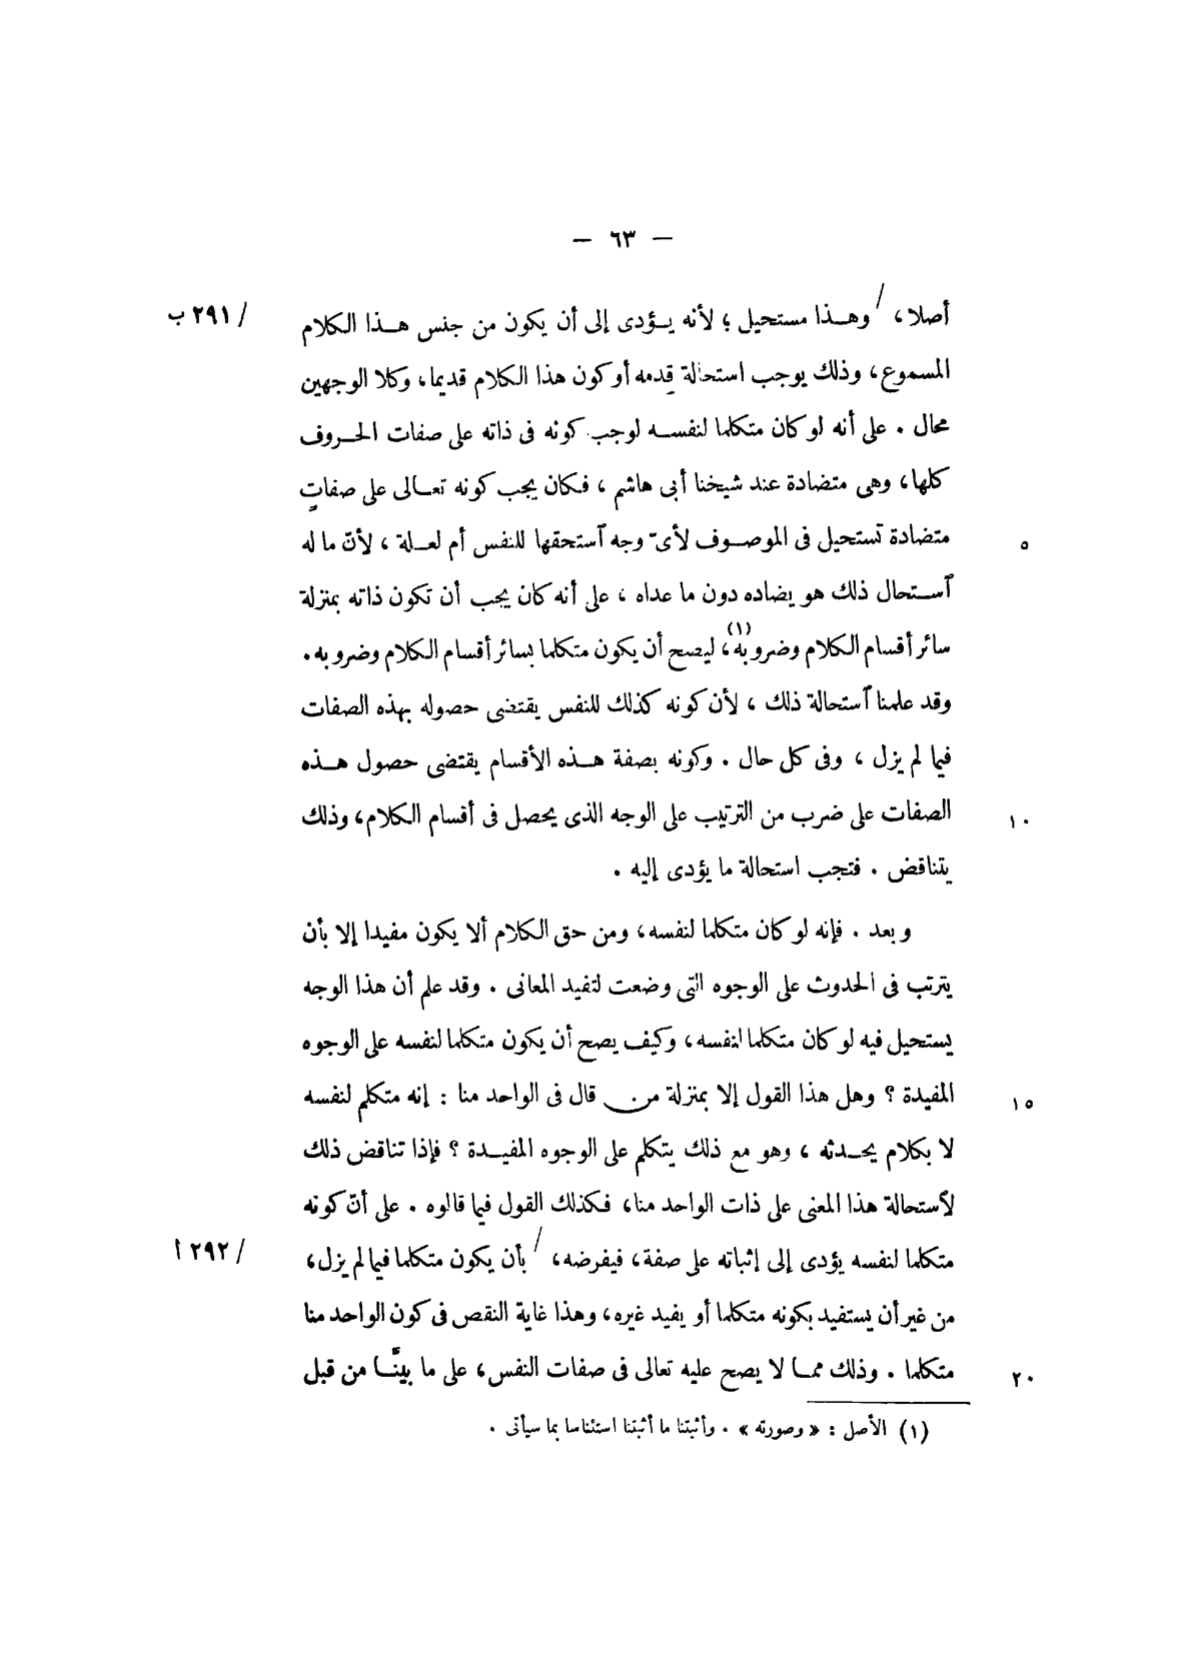 — ٦٣ —
أصلا، / وهــذا مستحيل ؛ لأنه يــؤدى إلى أن يكون من جنس هــذا الكلام / ٢٩١ ب
المسموع، وذلك يوجب استحالة قِدمه أو كون هذا الكلام قديما، وكلا الوجهين
محال . على أنه لو كان متكلما لنفســه لوجب كونه فى ذاته على صفات الحــروف
كلها، وهى متضادة عند شيخنا أبى هاشم ، فكان يجب كونه تعــالى على صفاتٍ
متضادة تستحيل فى الموصــوف لأىّ وجه ٱستحقها للنفس أم لعــلة ، لأنّ ما له ٥
ٱســتحال ذلك هو يضاده دون ما عداه ، على أنه كان يجب أن تكون ذاته بمنزلة
سائر أقسام الكلام وضروبه(١)، ليصح أن يكون متكلما بسائر أقسام الكلام وضروبه.
وقد علمنا ٱستحالة ذلك ، لأن كونه كذلك للنفس يقتضى حصوله بهذه الصفات
فيما لم يزل ، وفى كل حال . وكونه بصفة هــذه الأقسام يقتضى حصول هــذه
الصفات على ضرب من الترتيب على الوجه الذى يحصل فى أقسام الكلام، وذلك ١٠
يتناقض . فتجب استحالة ما يؤدى إليه .
وبعد . فإنه لو كان متكلما لنفسه، ومن حق الكلام ألا يكون مفيدا إلا بأن
يترتب فى الحدوث على الوجوه التى وضعت لتفيد المعانى . وقد علم أن هذا الوجه
يستحيل فيه لو كان متكلما لنفسه، وكيف يصح أن يكون متكلما لنفسه على الوجوه
المفيدة ؟ وهل هذا القول إلا بمنزلة من قال فى الواحد منا : إنه متكلم لنفسه ١٥
لا بكلام يحــدثه ، وهو مع ذلك يتكلم على الوجوه المفيــدة ؟ فإذا تناقض ذلك
لٱستحالة هذا المعنى على ذات الواحد منا، فكذلك القول فيما قالوه . على أنّ كونه
متكلما لنفسه يؤدى إلى إثباته على صفة، فيفرضه، / بأن يكون متكلما فيما لم يزل، / ٢٩٢ أ
من غير أن يستفيد بكونه متكلما أو يفيد غيره، وهذا غاية النقص فى كون الواحد منا
متكلما . وذلك ممــا لا يصح عليه تعالى فى صفات النفس، على ما بينَّــا من قبل ٢٠
(١) الأصل : « وصورته » . وأثبتنا ما أثبتنا استئناسا بما سيأتى .